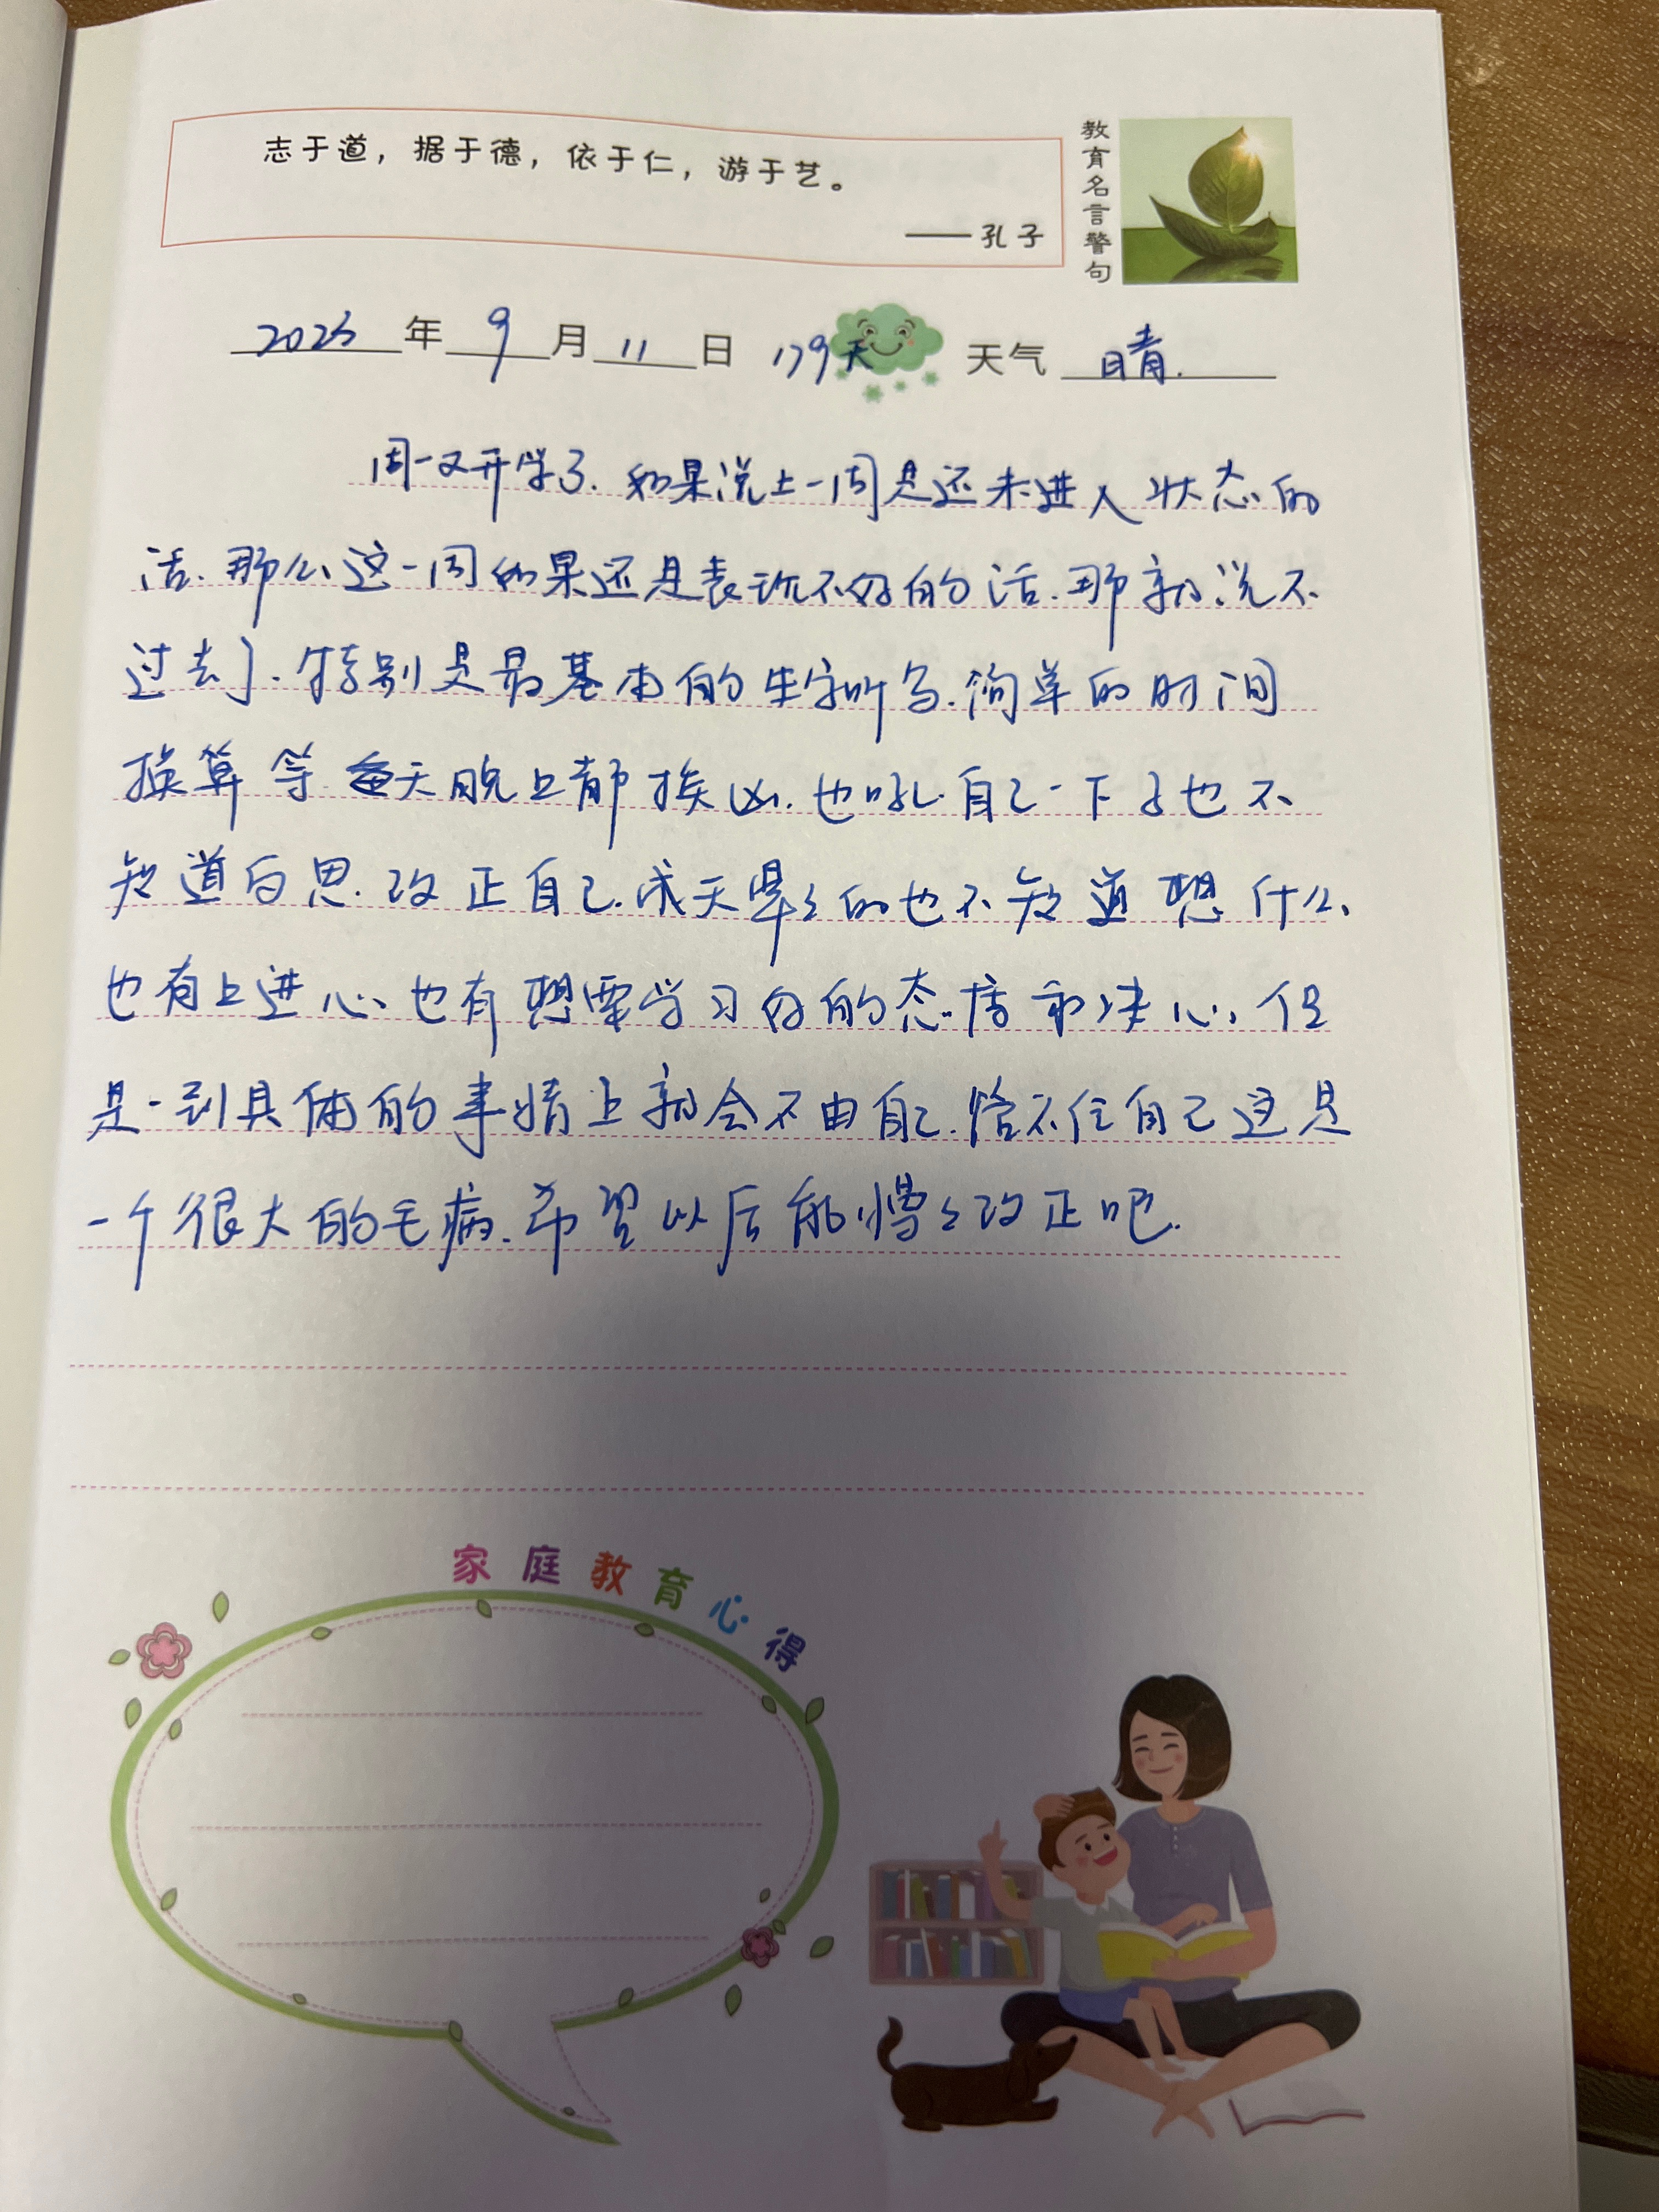 志于道，据于德，依于仁，游于艺。
——孔子
教育名言警句
2023年9月11日 179天 天气 晴.
周一又开学了.如果说上一周是还未进入状态的
话.那么这一周如果还是表现不好的话.那就说不
过去了.特别是最基本的生字听写.简单的时间
换算等.每天晚上都挨凶.也吼.自己一下子也不
知道反思.改正自己.成天晕晕的也不知道想什么、
也有上进心、也有想要学习好的态度和决心,但
是一到具体的事情上就会不由自己.管不住自己这是
一个很大的毛病.希望以后能慢慢改正吧.
家庭教育心得